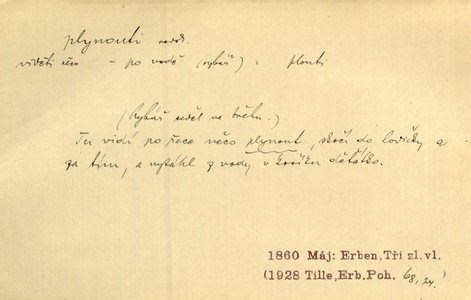 plynouti nedok.
viděti něco – po vodě (rybář) = plouti
(Rybář seděl na břehu.)
Tu vidí po řece něco plynout, skočí do lodičky a
za tím, a vytáhl z vody v košíku děťátko.
1860 Máj: Erben, Tři zl. vl.
(1928 Tille, Erb. Poh. 68, 24.)